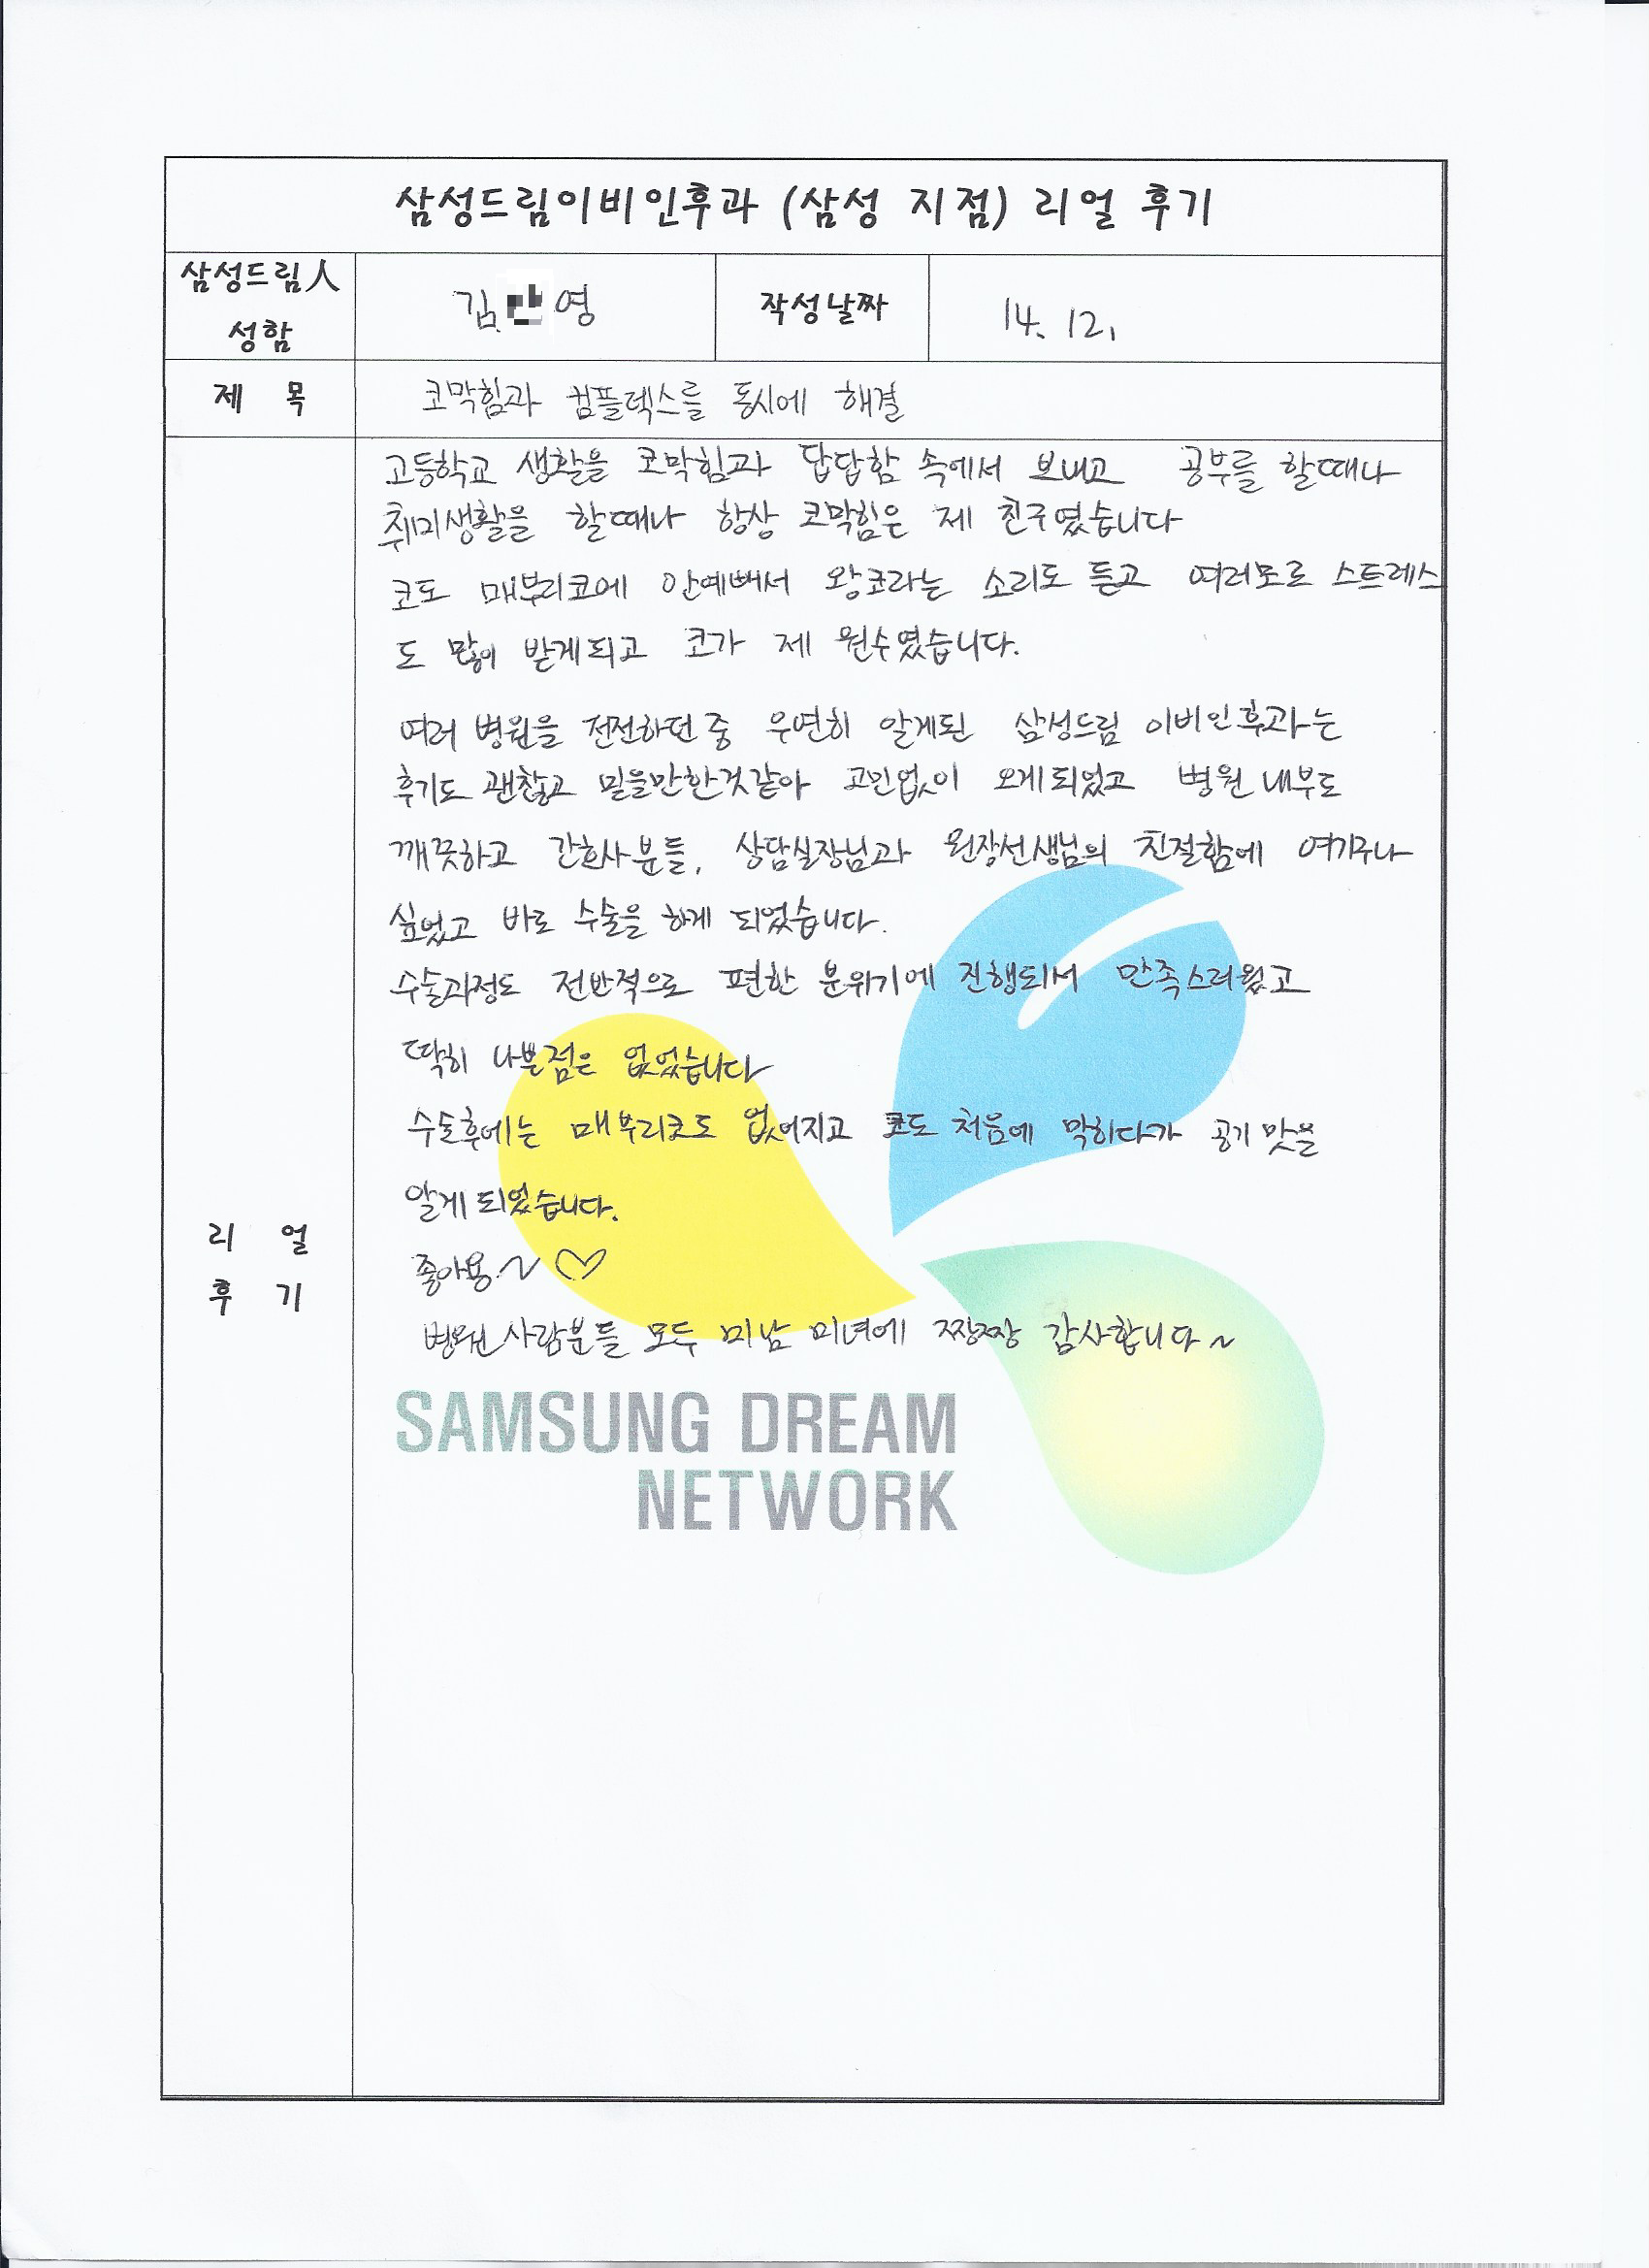 삼성드림이비인후과 (삼성 지점) 리얼 후기
삼성드림人 성함
김 영
작성날짜
14. 12.
제 목
코막힘과 컴플렉스를 동시에 해결
고등학교 생활을 코막힘과 답답함 속에서 보내고 공부를 할때나
취미생활을 할때나 항상 코막힘은 제 친구였습니다
코도 매부리코에 안예뻐서 왕코라는 소리도 듣고 여러모로 스트레스
도 많이 받게되고 코가 제 원수였습니다.
여러 병원을 전전하던 중 우연히 알게된 삼성드림 이비인후과는
후기도 괜찮고 믿을만한것같아 고민없이 오게되었고 병원 내부도
깨끗하고 간호사분들, 상담실장님과 원장선생님의 친절함에 여기구나
싶었고 바로 수술을 하게 되었습니다.
수술과정도 전반적으로 편한 분위기에 진행되서 만족스러웠고
딱히 나쁜점은 없었습니다
수술후에는 매부리코도 없어지고 코도 처음에 막히다가 공기 맛을
알게 되었습니다.
좋아용~ ♡
병원 사람분들 모두 미남 미녀에 짱짱 감사합니다~
리 얼
후 기
SAMSUNG DREAM
NETWORK